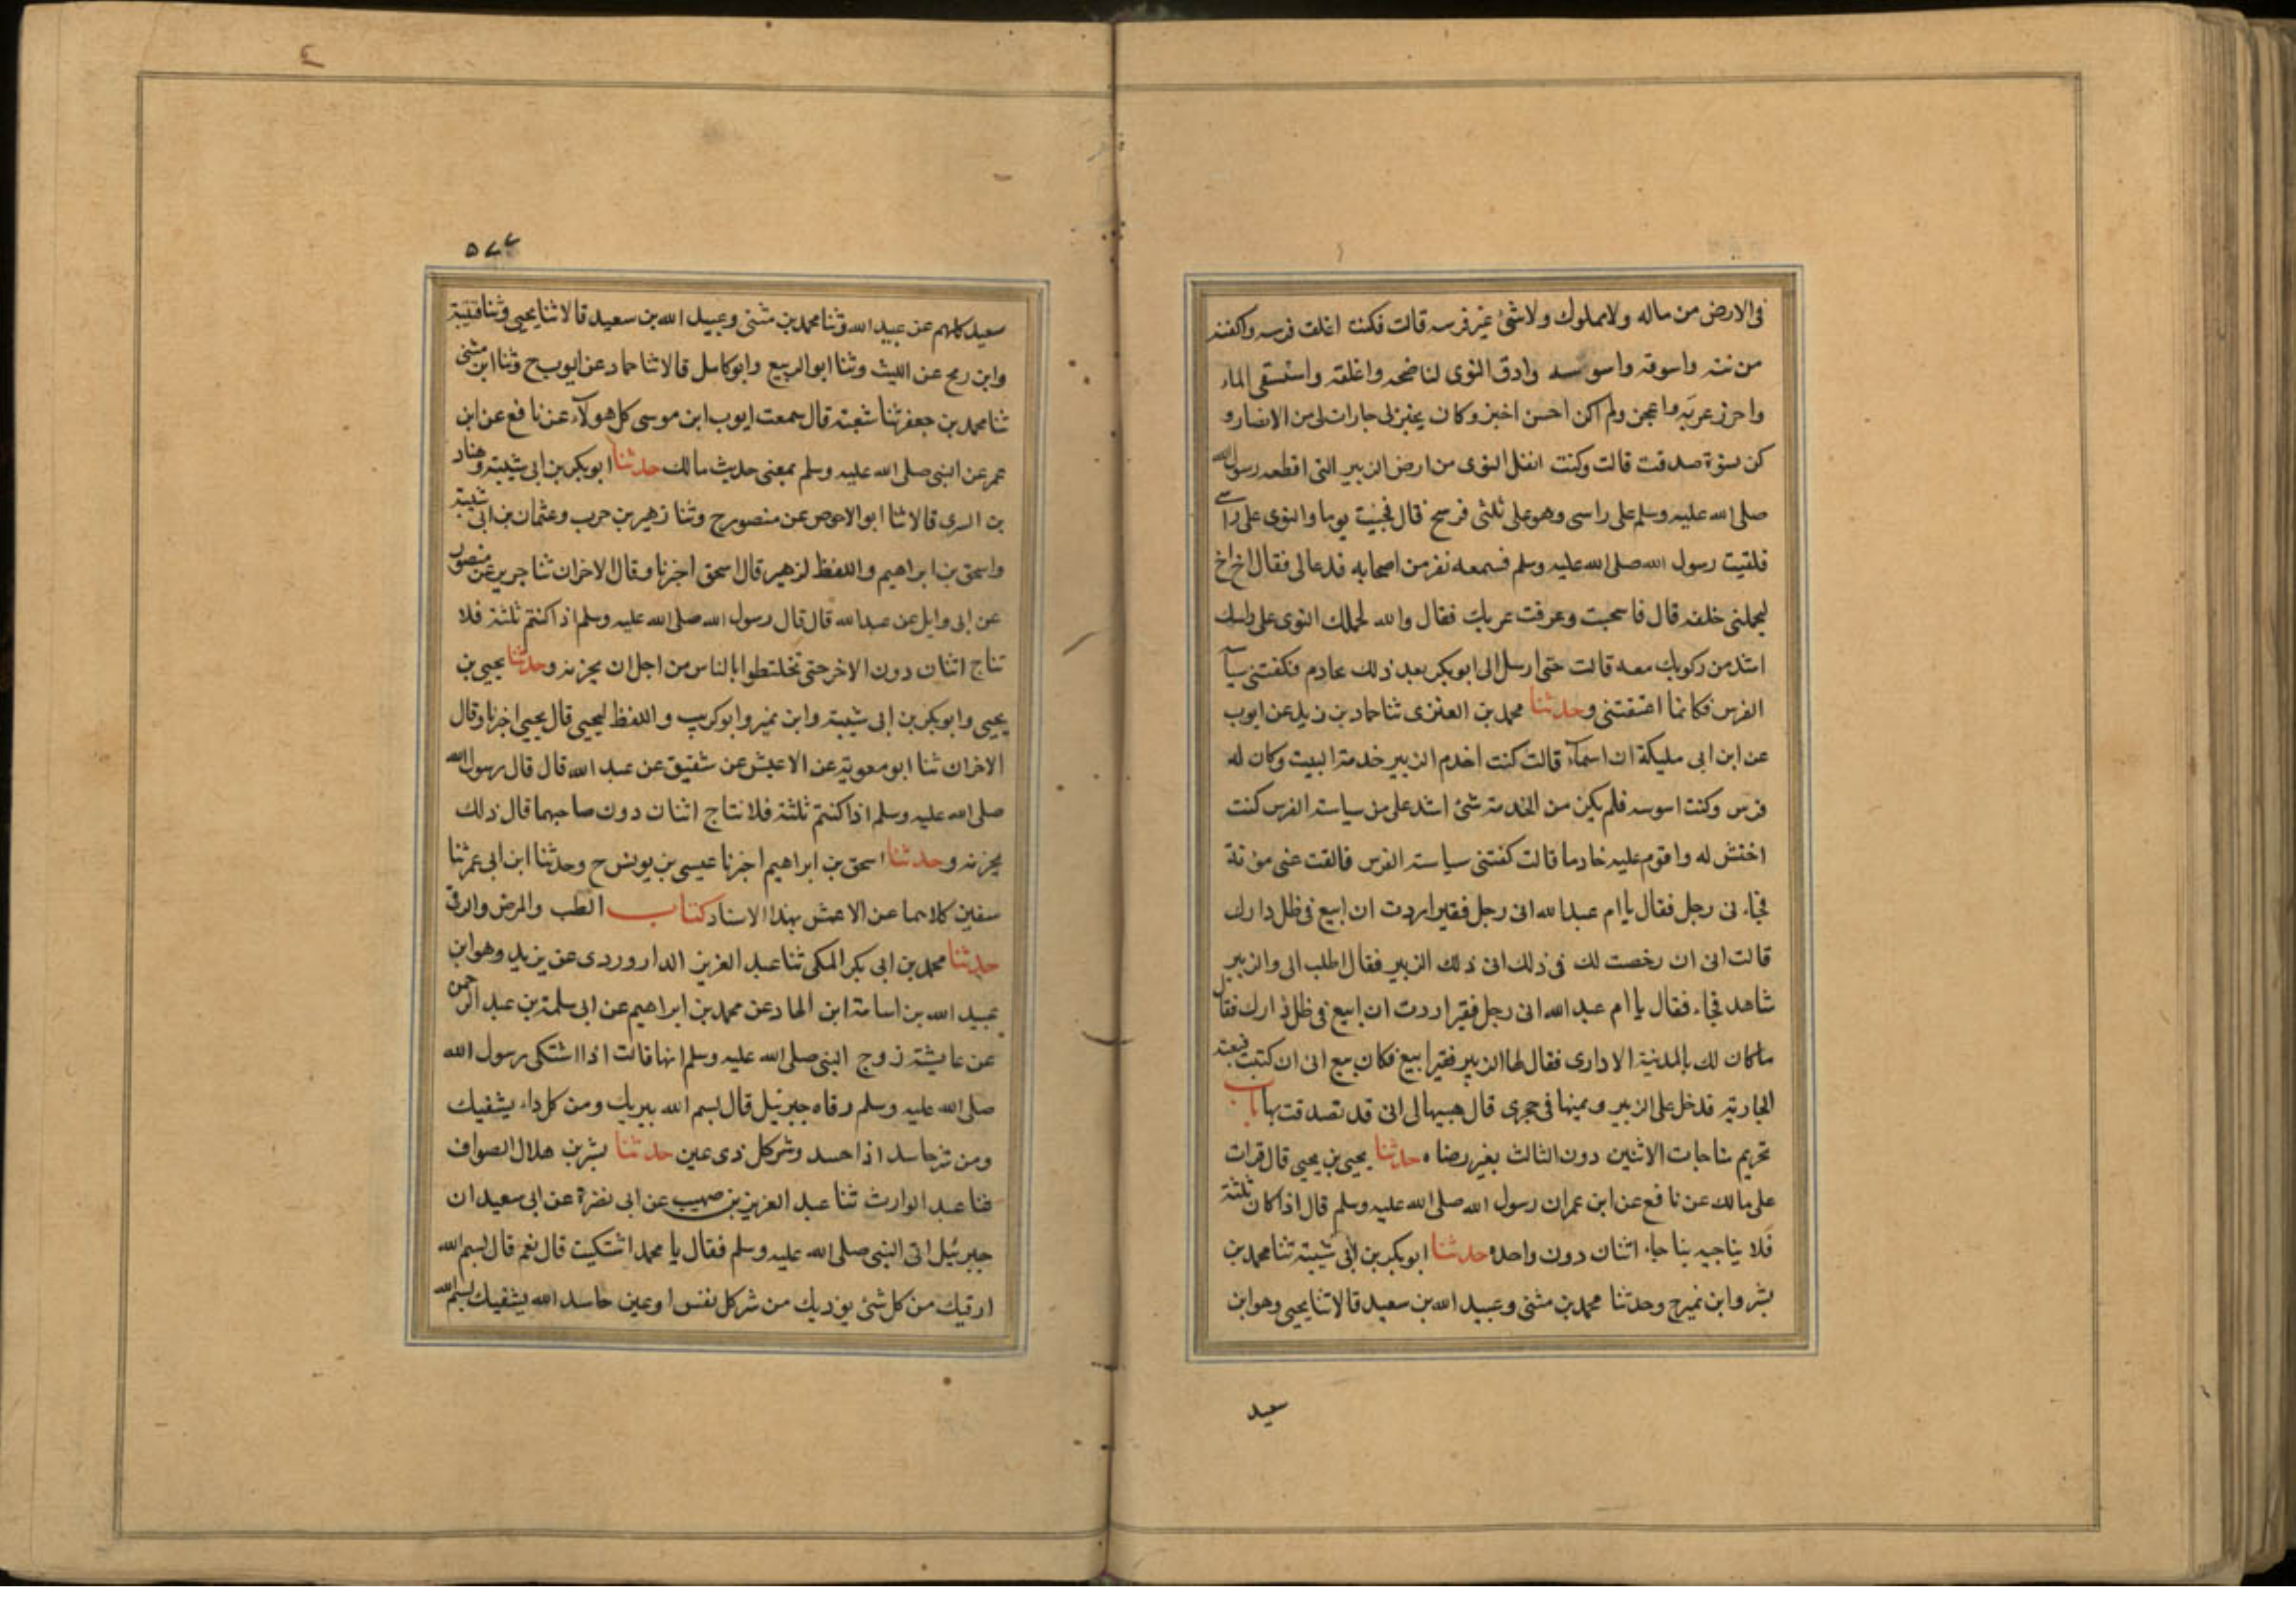 فى الارض من ماله ولا مملوك ولا شئ غير فرسه قالت فكنت اعلف فرسه واكفنه
واسوقه واسوسه وادق النوى لناضحه واعلفه واستسقى الماء
واحرز عربه واعجن ولم اكن احسن اخبز وكان يخبز لى جارات لى من الانصار و
كن نسوة صدقت قالت وكنت انقل النوى من ارض الزبير التى اقطعه رسول الله
صلى الله عليه وسلم على راسى وهو على ثلثى فرسخ قال فجئت يوما والنوى على راسى
فلقيت رسول الله صلى الله عليه وسلم فسمعه نفر من اصحابه فدعالى فقال اخ اخ
ليحملنى خلفه قال فاسحيت وعرفت غربك فقال والله لحملك النوى على راسك
اشد من ركوبك معه قالت حتى ارسل الى ابو بكر بعد ذلك بخادم فكفتنى سيا
الفرس فكانما اعتقتنى وحدثنا محمد بن العنزى ثنا حماد بن زيد عن ايوب
عن ابن ابى مليكة ان اسمآء قالت كنت اخدم الزبير خدمة البيت وكان له
فرس وكنت اسوسه فلم يكن من الخدمة شئ اشد على من سياسة الفرس كنت
احتش له واقوم عليه خادما قالت كفتنى سياسة الفرس فالقت عنى مؤنة
فجاءنى رجل فقال يا ام عبدالله انى رجل فقير اردت ان ابيع فى ظل دارك
قالت انى ان رخصت لك فى ذلك ابى ذلك الزبير فقال اطلب الى والزبير
شاهد فجاء فقال يا ام عبد الله انى رجل فقير اردت ان ابيع فى ظل دارك فقال
ماكان لك بالمدينة الا دارى فقال لها الزبير فقيرا يبيع فكان يبيع الى ان كتبت فبعته
الجارية فدخل على الزبير وثمينها فى حجرى قال هبيها لى انى قد تصدقت بها باب
تحريم مناجات الاثنين دون الثالث بغير رضاه حدثنا يحيى بن يحيى قال قرات
على مالك عن نافع عن ابن عمران رسول الله صلى الله عليه وسلم قال اذا كان ثلثة
فلا يناجيه بناجاء اثنان دون واحده حدثنا ابو بكر بن ابى شيبة ثنا محمد بن
بشر وابن نمير ح وحدثنا محمد بن مثنى وعبيد الله بن سعيد قالا ثنا يحيى وهو ابن
سعيد
٥٧٧
سعيد كلهم عن عبيد الله وثنا محمد بن مثنى وعبيد الله بن سعيد قالا ثنا يحيى وثنا قتيبة
وابن رمح عن الليث وثنا ابو الربيع وابو كامل قالا ثنا حماد عن ايوب ح وثنا ابن مثنى
ثنا محمد بن جعفر ثنا شعبة قال سمعت ايوب ابن موسى كل هولآء عن نافع عن ابن
عمر عن النبى صلى الله عليه وسلم بمعنى حديث مالك حدثنا ابو بكر بن ابى شيبة وهناد
بن السرى قالا ثنا ابو الاحوص عن منصور ح وثنا زهير بن حرب وعثمان بن ابى شيبة
واسحق بن ابراهيم واللفظ لزهير قال اسحق اخبرنا وقال الاخران ثنا جرير عن منصور
عن ابى وايل عن عبدالله قال قال رسول الله صلى الله عليه وسلم اذا كنتم ثلثة فلا
تناج اثنان دون الاخر حتى تختلطوا بالناس من اجل ان يحزنه وحدثنا يحيى بن
يحيى وابو بكر بن ابى شيبة وابن نمير وابو كريب واللفظ ليحيى قال يحيى اخبرنا وقال
الاخران ثنا ابو معوية عن الاعمش عن شقيق عن عبد الله قال قال رسول الله
صلى الله عليه وسلم اذا كنتم ثلثة فلا نتاج اثنان دون صاحبهما قال ذلك
يحزنه وحدثنا اسحق بن ابراهيم اخبرنا عيسى بن يونس ح وحدثنا ابن ابى عمر ثنا
سفين كلاهما عن الاعمش بهذا الاسناد كتاب الطب والمرض والرقى
حدثنا محمد بن ابى بكر المكى ثنا عبد العزيز الداروردى عن يزيد وهو ابن
عبيد الله بن اسامة ابن الهاد عن محمد بن ابراهيم عن ابى سلمة بن عبد الرحمن
عن عايشة زوج النبى صلى الله عليه وسلم انها قالت اذا اشتكى رسول الله
صلى الله عليه وسلم رقاه جبرئيل قال بسم الله يبريك ومن كل داء يشفيك
ومن شر حاسد اذا حسد وشر كل ذى عين حدثنا بشر بن هلال الصواف
ثنا عبد الوارث ثنا عبد العزيز بن صهيب عن ابى نضرة عن ابى سعيد ان
جبرئيل اتى النبى صلى الله عليه وسلم فقال يا محمد اشتكيت قال نعم قال بسم الله
ارقيك من كل شئ يوذيك من شر كل نفس او عين حاسد الله يشفيك بسم الله